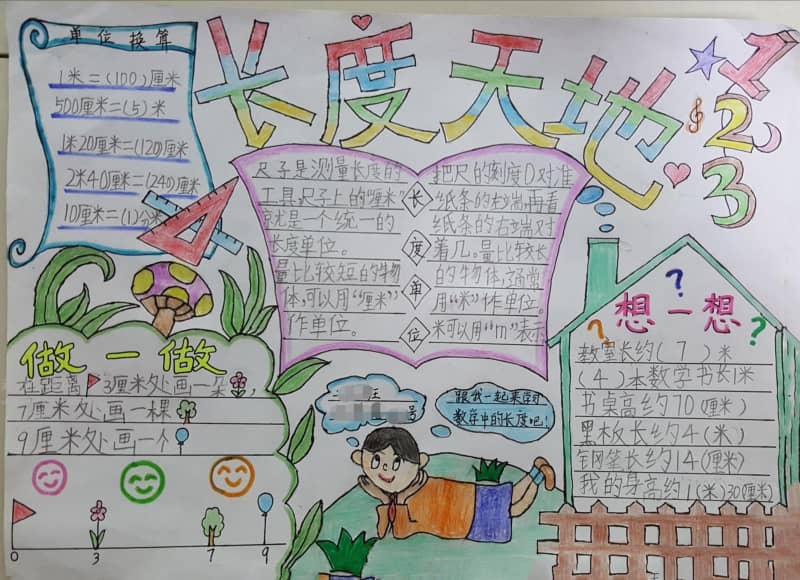 长度天地
1
2
3
单位换算
1米=(100)厘米
500厘米=(5)米
1米20厘米=(120)厘米
2米40厘米=(240)厘米
10厘米=(1)分米
尺子是测量长度的
工具,尺子上的"厘米"
就是一个统一的
长度单位。
量比较短的物
体,可以用"厘米"
作单位。
长
度
单
位
把尺的刻度0对准
纸条的右端,再看
纸条的右端对
着几。量比较长
的物体,通常
用"米"作单位。
米可以用"m"表示
做一做
在距离3厘米处画一朵,
7厘米处画一棵
9厘米处画一个
0
3
7
9
号
跟我一起来学习
数学中的长度吧!
想一想
? ? ?
教室长约(7)米
(4)本数学书长1米
书桌高约70(厘米)
黑板长约4(米)
钢笔长约14(厘米)
我的身高约1(米)30(厘米)